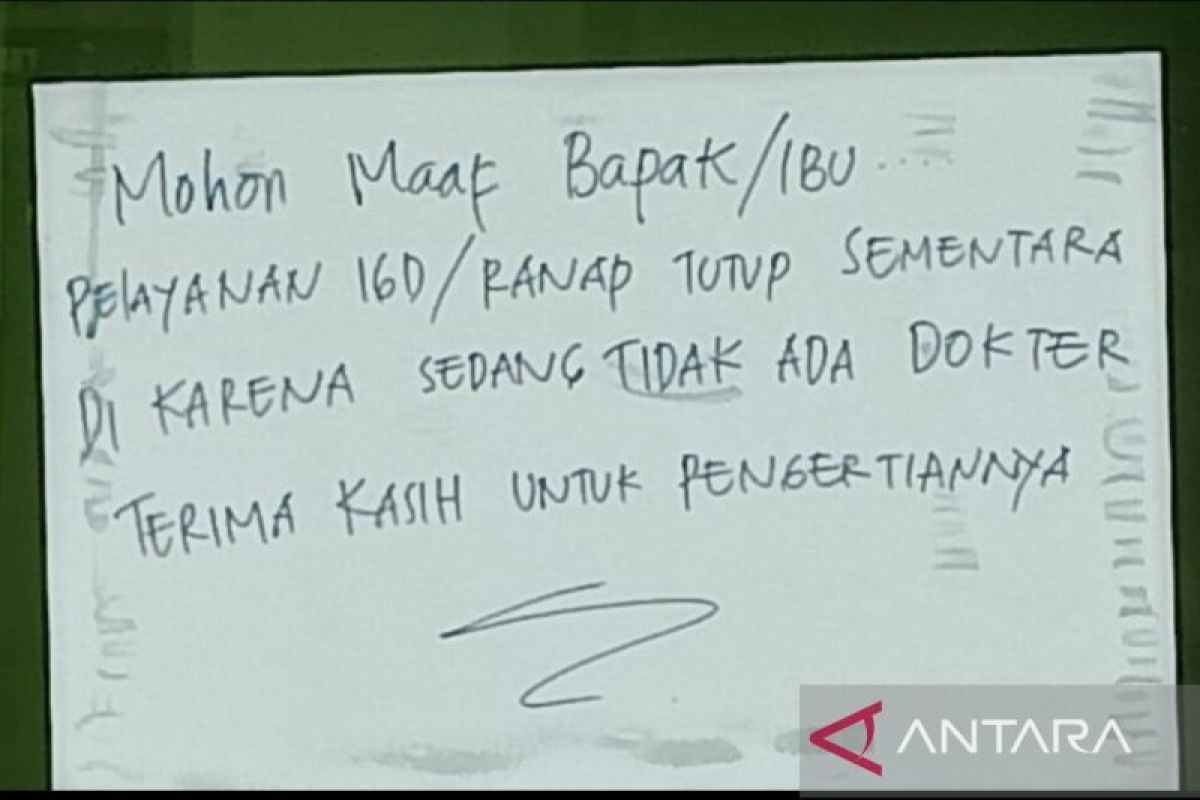 Mohon Maaf Bapak/IBU ....
PELAYANAN IGD/RANAP TUTUP SEMENTARA
DI KARENA SEDANG TIDAK ADA DOKTER
TERIMA KASIH UNTUK PENGERTIANNYA
ANTARA